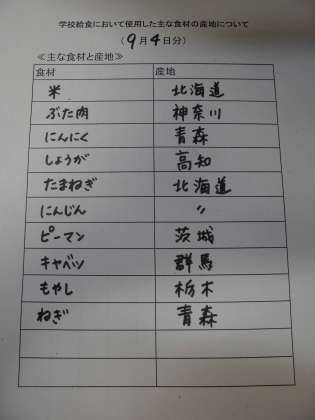 学校給食において使用した主な食材の産地について
(9月4日分)
≪主な食材と産地≫
食材 産地
米 北海道
ぶた肉 神奈川
にんにく 青森
しょうが 高知
たまねぎ 北海道
にんじん 〃
ピーマン 茨城
キャベツ 群馬
もやし 栃木
ねぎ 青森